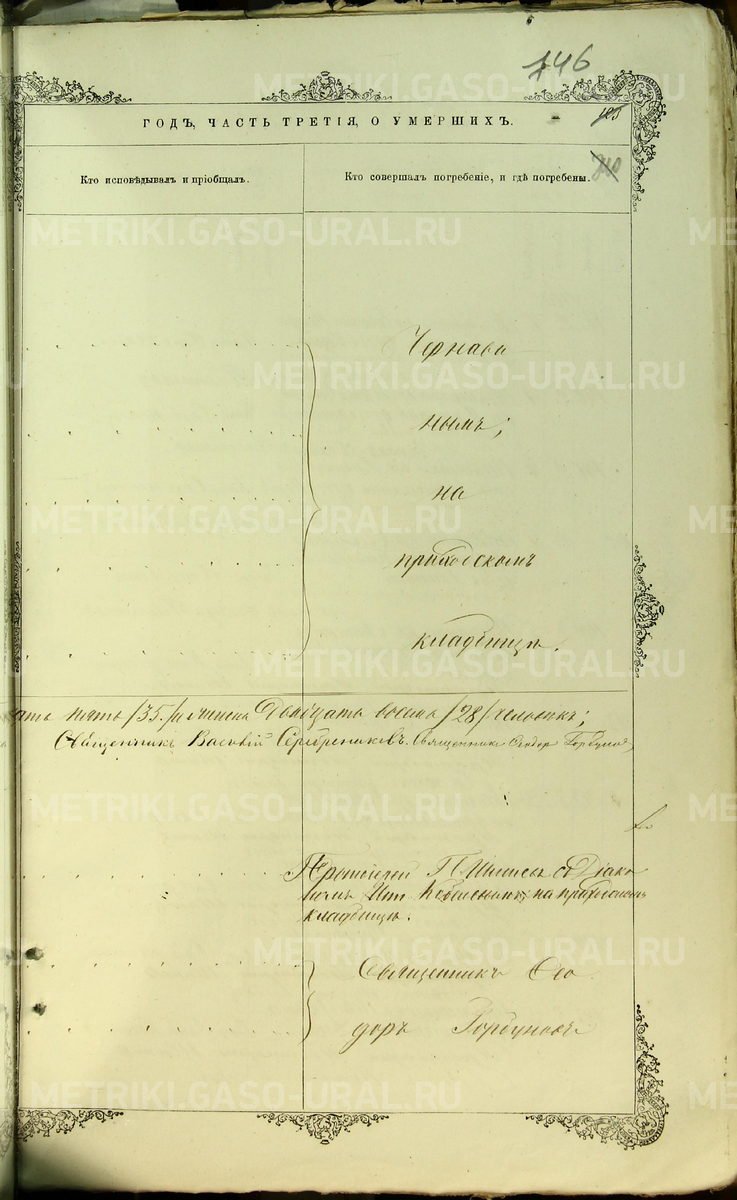 746
ГОДЪ, ЧАСТЬ ТРЕТІЯ, О УМЕРШИХЪ.
Кто исповѣдывалъ и пріобщалъ.
Кто совершалъ погребеніе, и гдѣ погребены.
Чернавы
нымъ;
на
приходскомъ
кладбищѣ.
ать пять /35/ и женска двадцать восемь /28/ человѣкъ;
Священникъ Василій Серебрениковъ. Священникъ Ѳеодоръ Горбунов
Протоіерей П. съ Діако
номъ на приходскомъ
кладбищѣ.
Священникъ Ѳео
доръ Горбуновъ
METRIKI.GASO-URAL.RU